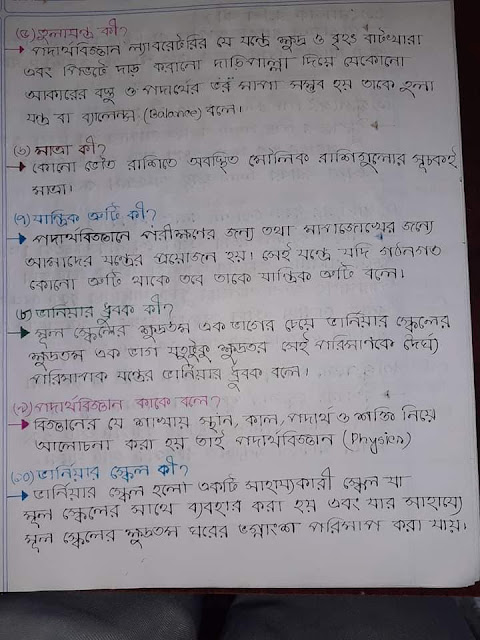 (৫) তুলাযন্ত্র কী?
→ পদার্থবিজ্ঞান ল্যাবরেটরির যে যন্ত্রে ক্ষুদ্র ও বৃহৎ বাটখারা
এবং পিভটে দাড় করানো দাড়িপাল্লা দিয়ে যেকোনো
আকারের বস্তু ও পদার্থের ভর মাপা সম্ভব হয় তাকে তুলা
যন্ত্র বা ব্যালেন্স (Balance) বলে।
(৬) মাত্রা কী?
→ কোনো ভৌত রাশিতে অবস্থিত মৌলিক রাশিগুলোর সূচকই
মাত্রা।
(৭) যান্ত্রিক ত্রুটি কী?
→ পদার্থবিজ্ঞানে পরীক্ষণের জন্য তথা মাপজোখের জন্যে
আমাদের যন্ত্রের প্রয়োজন হয়। সেই যন্ত্রে যদি গঠনগত
কোনো ত্রুটি থাকে তবে তাকে যান্ত্রিক ত্রুটি বলে।
(৮) ভার্নিয়ার ধ্রুবক কী?
→ মূল স্কেলের ক্ষুদ্রতম এক ভাগের চেয়ে ভার্নিয়ার স্কেলের
ক্ষুদ্রতম এক ভাগ যতটুকু ক্ষুদ্রতর সেই পরিমাণকে দৈর্ঘ্য
পরিমাপক যন্ত্রের ভার্নিয়ার ধ্রুবক বলে।
(৯) পদার্থবিজ্ঞান কাকে বলে?
→ বিজ্ঞানের যে শাখায় স্থান, কাল, পদার্থ ও শক্তি নিয়ে
আলোচনা করা হয় তাই পদার্থবিজ্ঞান (Physics)
(১০) ভার্নিয়ার স্কেল কী?
→ ভার্নিয়ার স্কেল হলো একটি সাহায্যকারী স্কেল যা
মূল স্কেলের সাথে ব্যবহার করা হয় এবং যার সাহায্যে
মূল স্কেলের ক্ষুদ্রতম ঘরের ভগ্নাংশ পরিমাপ করা যায়।